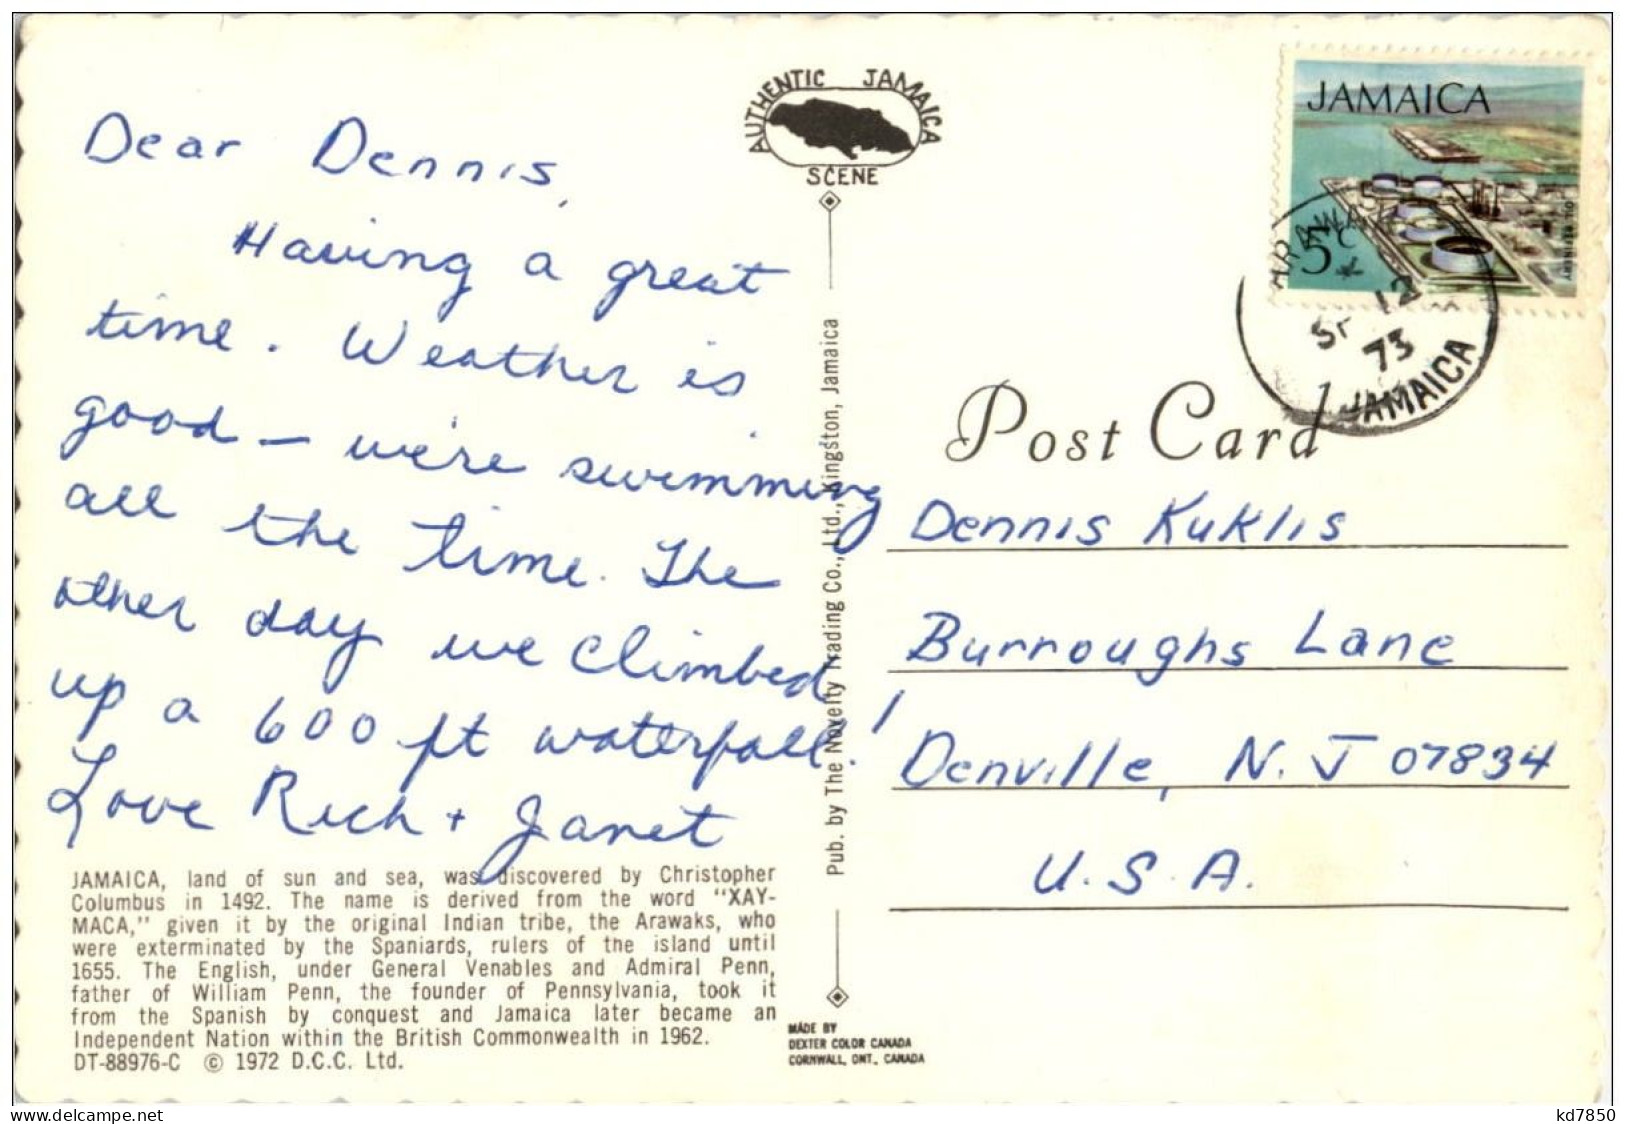 Dear Dennis,
Having a great
time. Weather is
good - we're swimming
all the time. The
other day we climbed
up a 600 ft waterfall!
Love Rich + Janet
JAMAICA, land of sun and sea, was discovered by Christopher
Columbus in 1492. The name is derived from the word "XAY-
MACA," given it by the original Indian tribe, the Arawaks, who
were exterminated by the Spaniards, rulers of the island until
1655. The English, under General Venables and Admiral Penn,
father of William Penn, the founder of Pennsylvania, took it
from the Spanish by conquest and Jamaica later became an
Independent Nation within the British Commonwealth in 1962.
DT-88976-C © 1972 D.C.C. Ltd.
AUTHENTIC JAMAICA
SCENE
Pub. by The Novelty Trading Co., Ltd., Kingston, Jamaica
MADE BY
DEXTER COLOR CANADA
CORNWALL, ONT., CANADA
JAMAICA
5c
OIL REFINERY
12
73
JAMAICA
Post Card
Dennis Kuklis
Burroughs Lane
Denville, N.J 07834
U.S.A.
www.delcampe.net
kd7850